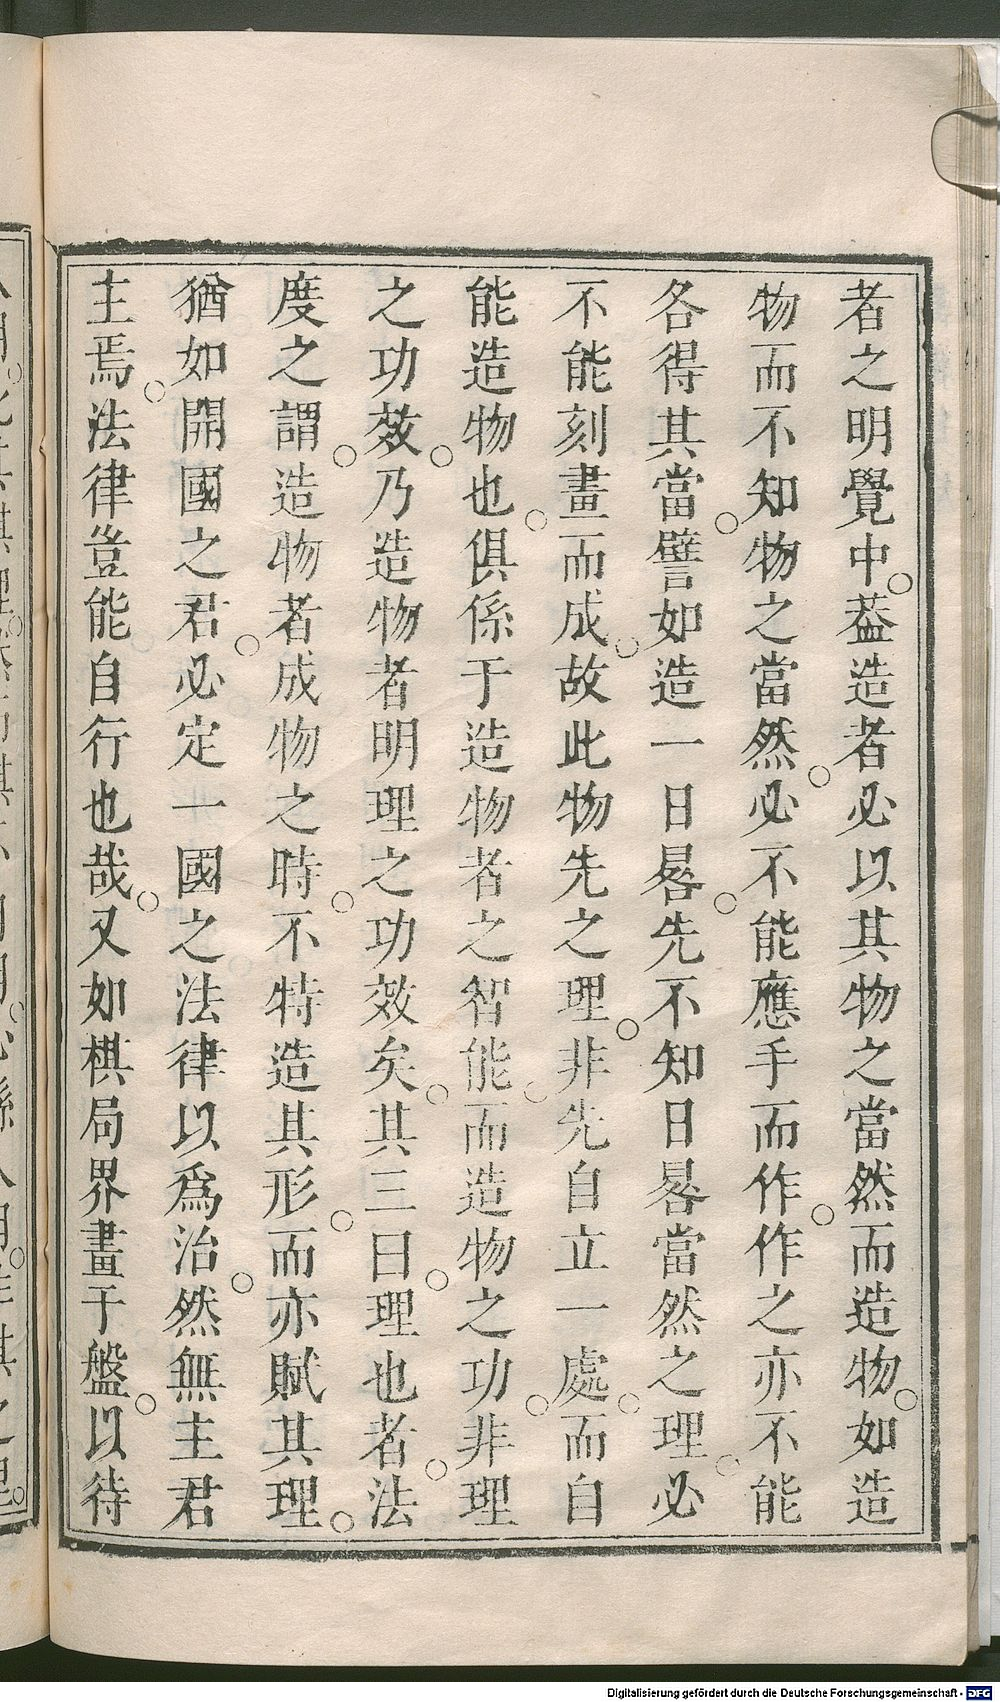 者之明覺中。葢造者必以其物之當然而造物。如造
物而不知物之當然。必不能應手而作。作之亦不能
各得其當。譬如造一日晷。先不知日晷當然之理。必
不能刻畫而成。故此物先之理。非先自立一處。而自
能造物也。俱係于造物者之智能。而造物之功。非理
之功效。乃造物者明理之功效矣。其三曰。理也者。法
度之謂。造物者成物之時。不特造其形。而亦賦其理。
猶如開國之君。必定一國之法律以爲治。然無主君
主焉。法律豈能自行也哉。又如棋局界畫于盤。以待
Digitalisierung gefördert durch die Deutsche Forschungsgemeinschaft - DFG